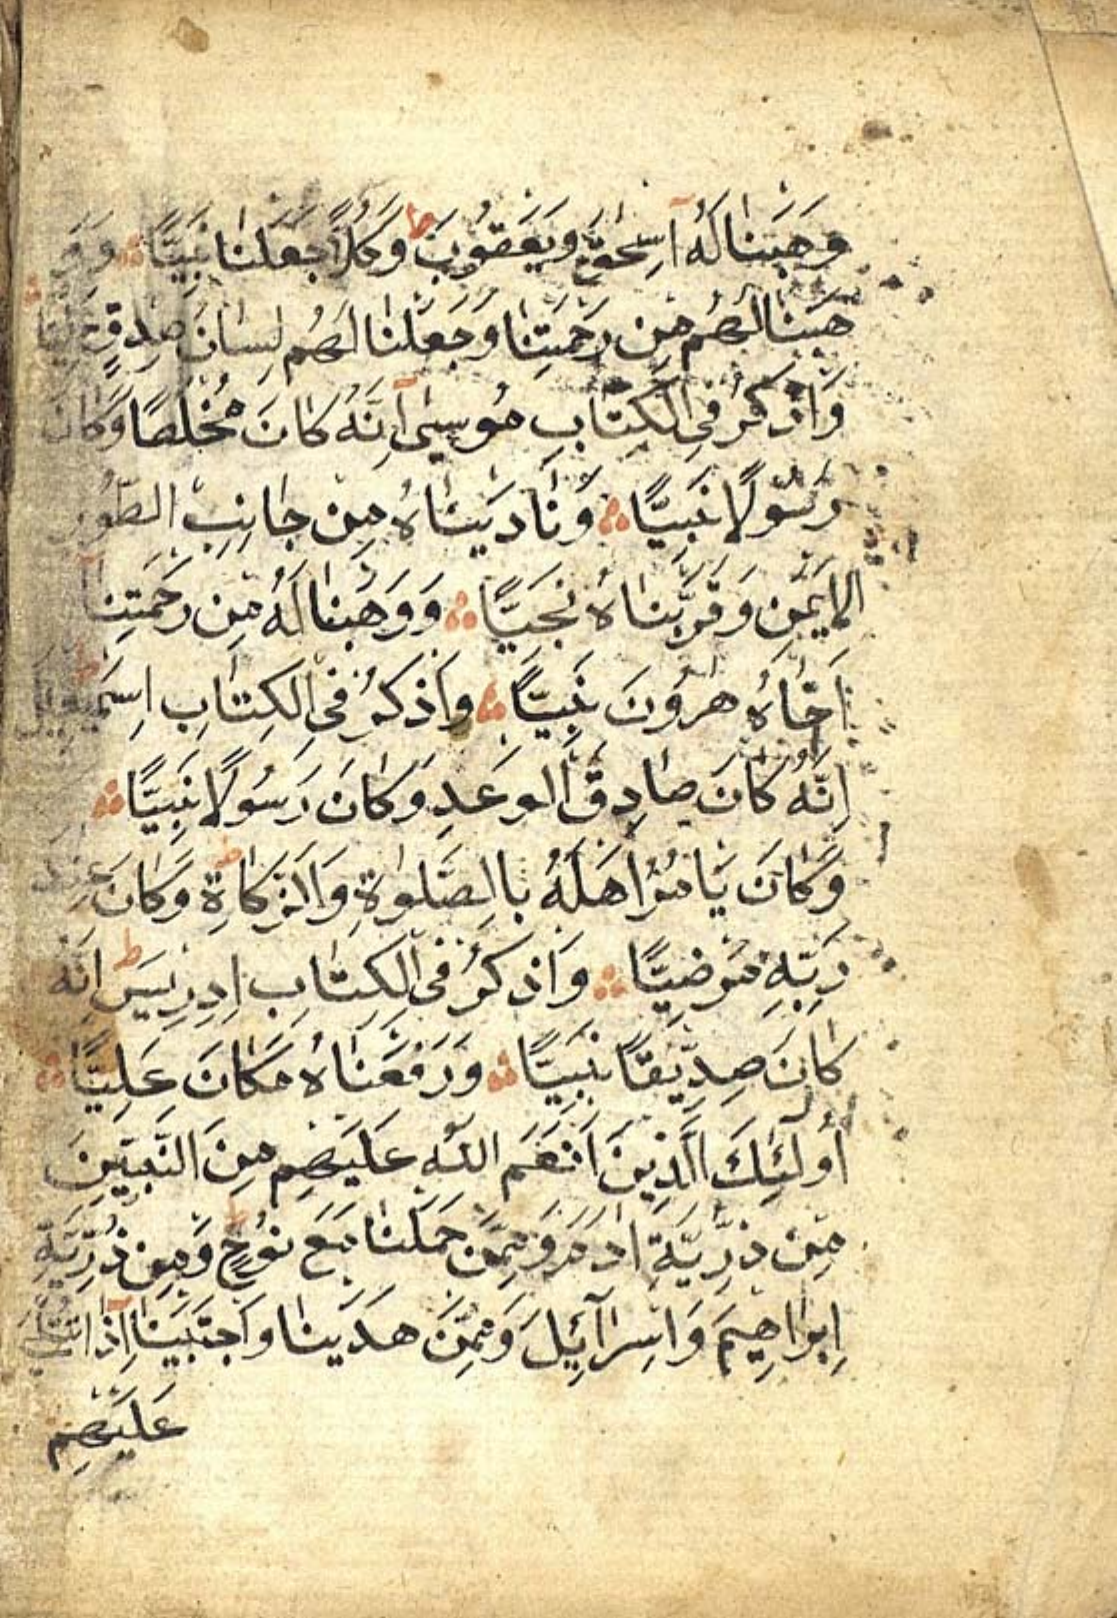 وَهَبْنَا لَهُ اِسْحٰقَ وَيَعْقُوبَ ط وَكُلًّا جَعَلْنَا نَبِيًّا وَوَ
هَبْنَا لَهُمْ مِنْ رَحْمَتِنَا وَجَعَلْنَا لَهُمْ لِسَانَ صِدْقٍ عَلِيًّا
وَاذْكُرْ فِي الْكِتَابِ مُوسٰى اِنَّهُ كَانَ مُخْلَصًا وَكَانَ
رَسُولًا نَبِيًّا وَنَادَيْنَاهُ مِنْ جَانِبِ الطُّورِ
الْاَيْمَنِ وَقَرَّبْنَاهُ نَجِيًّا وَوَهَبْنَا لَهُ مِنْ رَحْمَتِنَا
اَخَاهُ هٰرُونَ نَبِيًّا وَاذْكُرْ فِي الْكِتَابِ اِسْمٰعِيلَ
اِنَّهُ كَانَ صَادِقَ الْوَعْدِ وَكَانَ رَسُولًا نَبِيًّا
وَكَانَ يَامُرُ اَهْلَهُ بِالصَّلٰوةِ وَالزَّكَاةِ وَكَانَ عِنْدَ
رَبِّهِ مَرْضِيًّا وَاذْكُرْ فِي الْكِتَابِ اِدْرِيسَ ط اِنَّهُ
كَانَ صِدِّيقًا نَبِيًّا وَرَفَعْنَاهُ مَكَانَ عَلِيًّا
اُولٰئِكَ الَّذِينَ اَنْعَمَ اللّٰهُ عَلَيْهِمْ مِنَ النَّبِيِّنَ
مِنْ ذُرِّيَّةِ اٰدَمَ وَمِمَّنْ حَمَلْنَا مَعَ نُوحٍ ط وَمِنْ ذُرِّيَّةِ
اِبْرَاهِيمَ وَاِسْرَآئِلَ وَمِمَّنْ هَدَيْنَا وَاجْتَبَيْنَا اِذَا تُتْلٰى
عَلَيْهِمْ